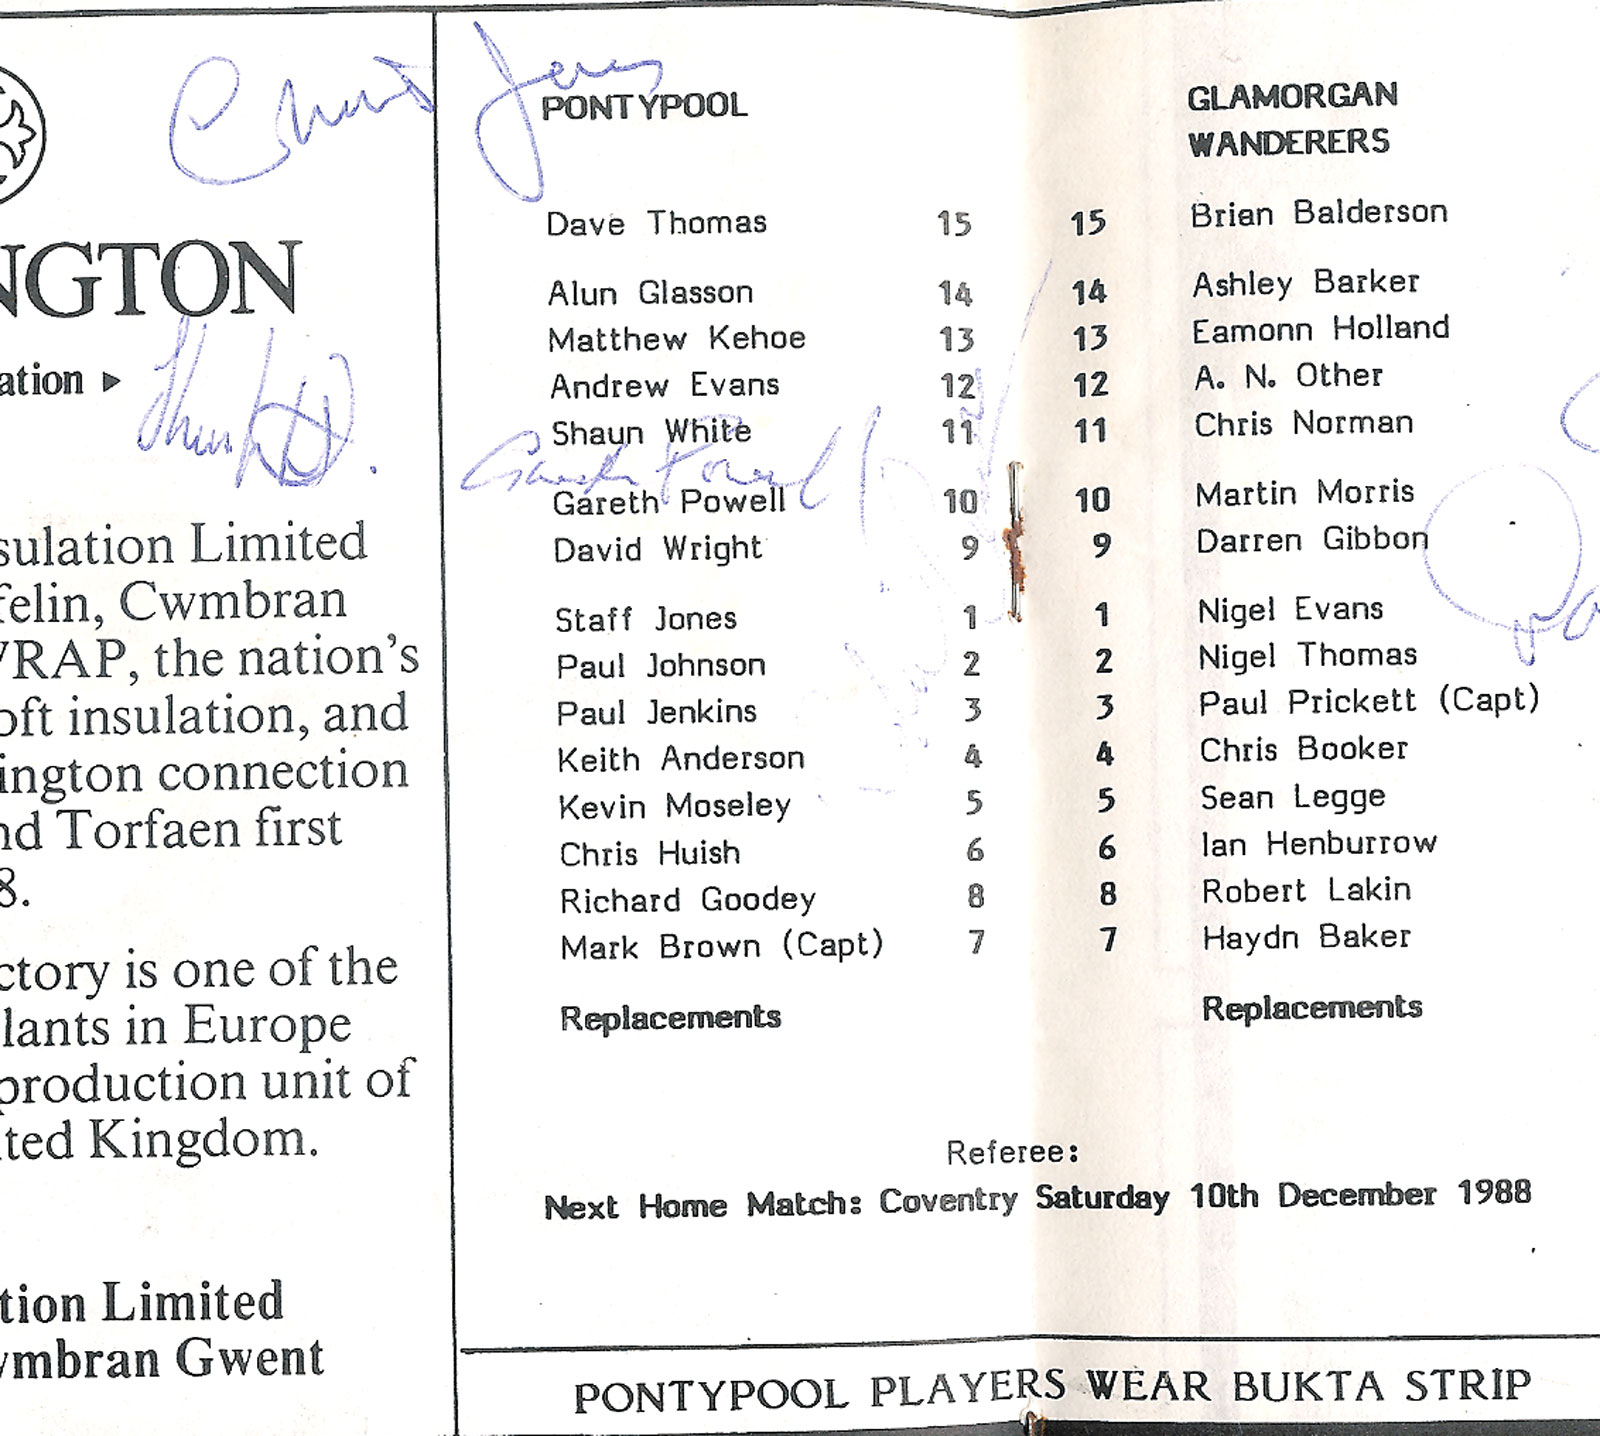 NGTON
ation ▸
sulation Limited
felin, Cwmbran
RAP, the nation's
oft insulation, and
ington connection
nd Torfaen first
8.
ctory is one of the
lants in Europe
production unit of
ted Kingdom.
tion Limited
wmbran Gwent
PONTYPOOL
Dave Thomas 15
Alun Glasson 14
Matthew Kehoe 13
Andrew Evans 12
Shaun White 11
Gareth Powell
Gareth Powell 10
David Wright 9
Staff Jones 1
Paul Johnson 2
Paul Jenkins 3
Keith Anderson 4
Kevin Moseley 5
Chris Huish 6
Richard Goodey 8
Mark Brown (Capt) 7
Replacements
GLAMORGAN
WANDERERS
15 Brian Balderson
14 Ashley Barker
13 Eamonn Holland
12 A. N. Other
11 Chris Norman
10 Martin Morris
9 Darren Gibbon
1 Nigel Evans
2 Nigel Thomas
3 Paul Prickett (Capt)
4 Chris Booker
5 Sean Legge
6 Ian Henburrow
8 Robert Lakin
7 Haydn Baker
Replacements
Referee:
Next Home Match: Coventry Saturday 10th December 1988
PONTYPOOL PLAYERS WEAR BUKTA STRIP